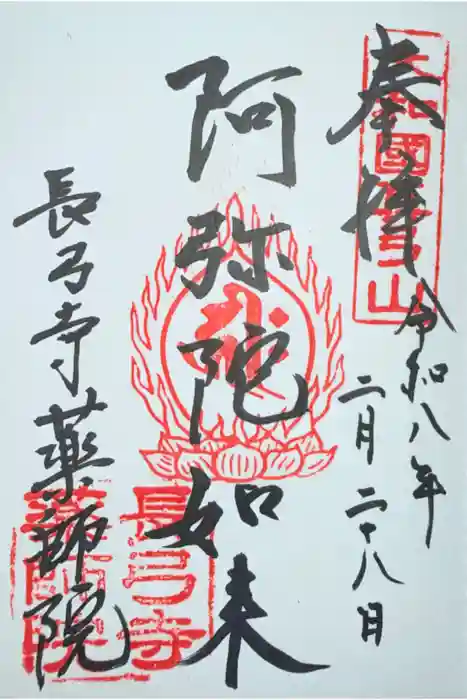 奉拝
令和八年
二月二十八日
阿弥陀如来
長弓寺薬師院
長弓寺
薬師院